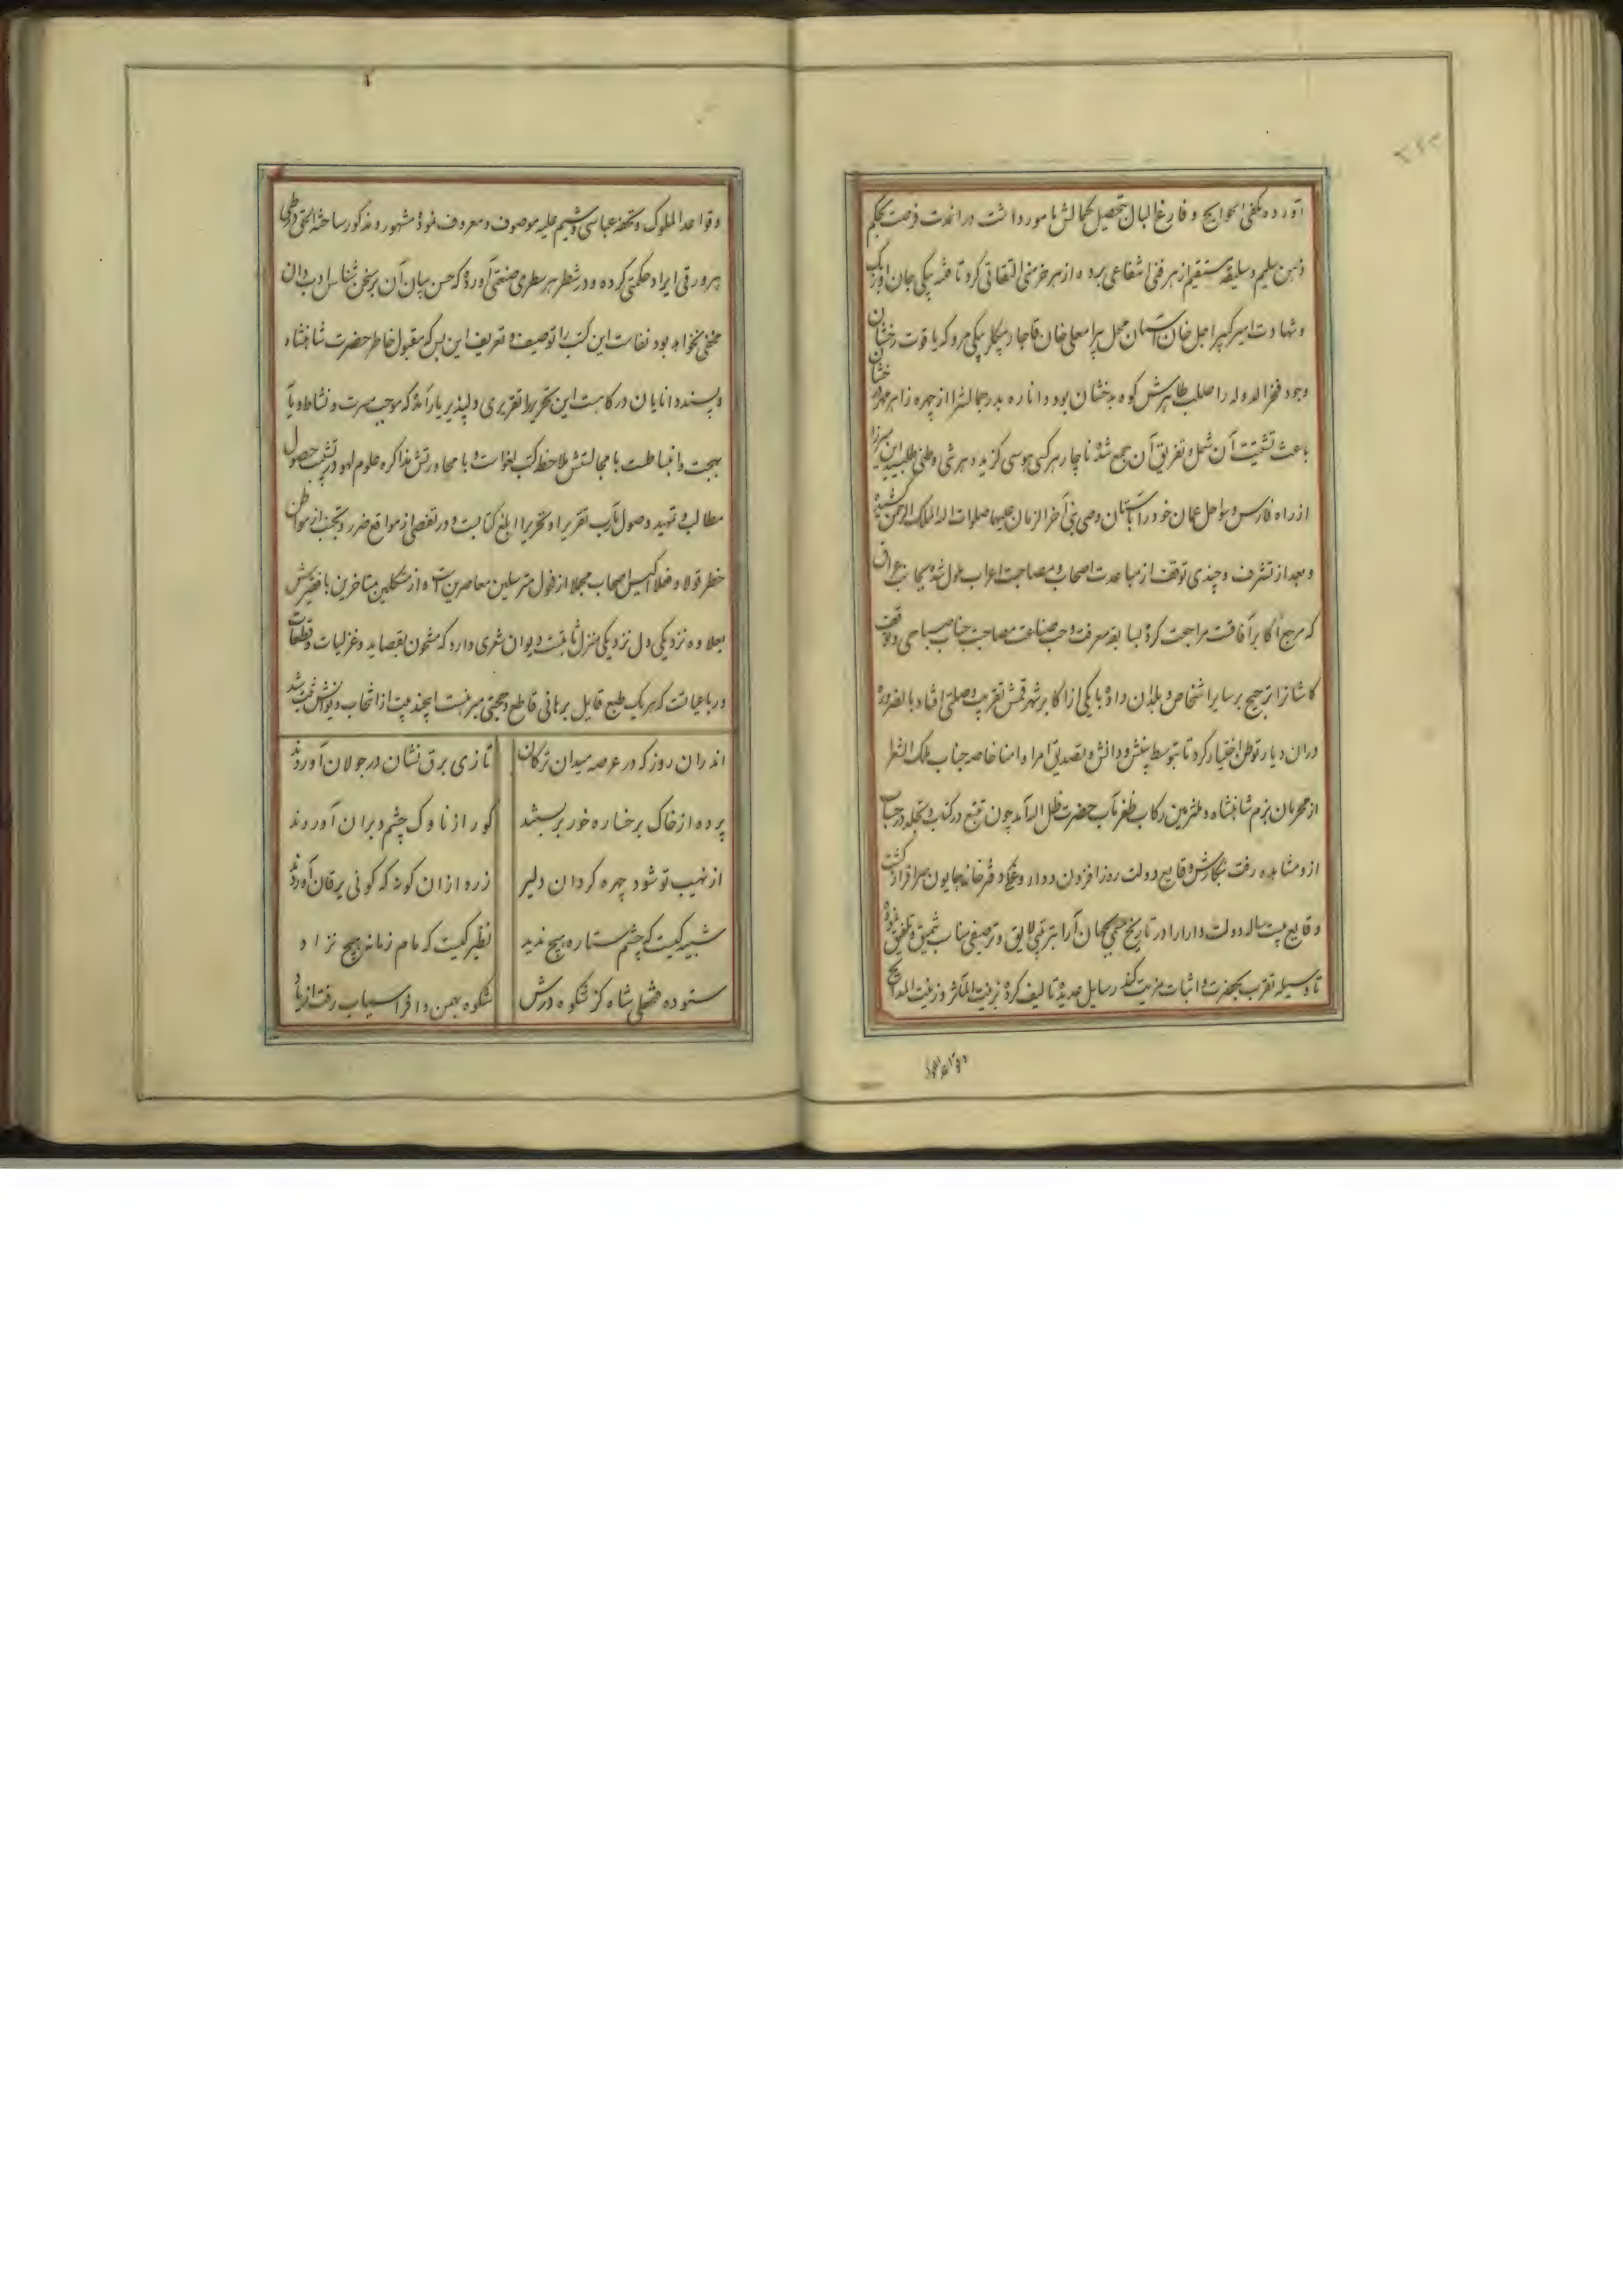 آورده مکفی الحوایج و فارغ البال بتحصیل کمالش مامور داشت در اندت فرصت بحکم
ذهن سلیم و سلیقه مستقیم از هر فنی انتفاعی برده و از هر خرمنی التقاطی کرد تا فتنه بیکی جان اوزبک
و شهادت امیر کبیر اجل خان آسمان محل بیرامعلی خان قاجار بیکلربیکی مرو که یاقوت رخشان
وجود فخر الدوله را صلب طاهرش کوه بدخشان بود و اناره بدر جمالش را از چهره زاهر مهر درخشان
باعث تشتیت آن شمل و تفریق آن جمع شده ناچار هر کسی هوسی گزید و هر شی وطنی طلبید این میرزا
از راه فارس و سواحل عمان خود را بآستان وصی نبی آخر الزمان علیهما صلوات الله الملک الرحمن کشیده
و بعد از تشرف و چندی توقف از مباعدت اصحاب و مصاحبت اعراب ملول شده بجانب عراق
که مرجع اکابر آفاقست مراجعت کرده بسابقه معرفت و حب صناعت مصاحبت جناب صباحی و توقف
کاشان را ترجیح بر سایر اشخاص و بلدان داده با یکی از اکابر شهر قمش تقریب وصلتی افتاد بالضروره
در آن دیار توطن اختیار کرد تا بتوسط بینش و دانش و بتصدیق امرا و امنا خاصه جناب ملک الشعرا
از محرمان بزم شاهنشاه و ملتزمین رکاب ظفر مآب حضرت ظل الله آمد چون تتبع در کتاب و تجله در حساب
ازو مشاهده رفت بنگارش وقایع دولت روز افزون و داروغگی دفترخانه همایون سرافراز گشت
وقایع بیست ساله دولت دارا را در تاریخ جهان آرا بترتیبی لایق و ترصیفی مناسب تنمیق و تلفیق نموده
تا وسیله تقرب بحضرت و اثبات مزیت کند رسایل عدیده تالیف کرده زینت المآثر و زینت المدایح
و قواعد الملوک و تحفه عباسی و شیم علیه موصوف و معروف نموده مشهور و مذکور ساخت الحق در طی
هر ورقی ایراد حکمتی کرده و در شطر هر سطری صنعتی آورده که حسن بیان آن بر سخن شناس ادب دان
مخفی نخواهد بود نفاست این کتب را توصیف و تعریف این بس که مقبول خاطر حضرت شاهنشاه
و پسند دانایان درگاهست این تحریر را تقریری دلپذیر یار آمده که موجب مسرت و نشاط و باعث
بهجت و انبساطست با مجالستش ملاحظه کتب لغو است و با محاورتش مذاکره علوم لهو در تشیت حصول
مطالب و تمهید وصول مآرب تقریرا و تحریرا ابلغ کتابست و در تفصی از مواقع ضرر و تجنب از مواطن
خطر قولا و فعلا اکیس اصحاب مجملا از فحول مترسلین معاصرین است و از متکلمین متاخرین با فقیرش
بعلاوه نزدیکی دل نزدیکی منزل ثابتست دیوان شعری دارد که مشحون بقصاید و غزلیات و قطعات
و رباعیاتست که هر یک طبع قایل برهانی قاطع و حجتی مبرهنست این چند بیت از انتخاب دیوانش ثبت شد
اندران روز که در عرصه میدان ترکان تازی برق نشان در جولان آورند
پرده از خاک برخساره خور بربستند کور از ناوک چشم دبران آورند
از نهیب تو شود چهره گردان دلیر زرد از ان گونه که گوئی یرقان آورند
شبیه کیست که چشم ستاره هیچ ندید نظیر کیست که مام زمانه هیچ نزاد
ستوده فتحعلی شاه کز شکوه درش شکوه بهمن و افراسیاب رفت از یاد